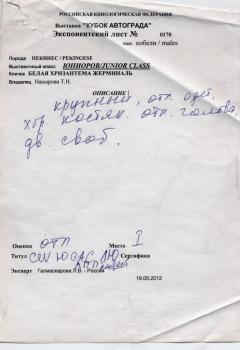 РОССИЙСКАЯ КИНОЛОГИЧЕСКАЯ ФЕДЕРАЦИЯ
Выставка "КУБОК АВТОГРАДА"
Экспонентский лист № 0170
пол: кобели / males
Порода ПЕКИНЕС / PEKINGESE
Выставочный класс ЮНИОРОВ/JUNIOR CLASS
Кличка БЕЛАЯ ХРИЗАНТЕМА ЖЕРМИНАЛЬ
Владелец Насырова Т.Н.
ОПИСАНИЕ
крупный, отл. одет,
хор. костяк. отл. голова,
дв. своб.
Оценка отл Место I
Титул CW ЮСАС ЛЮ Сертификата
Эксперт Галиаскарова Л.В. - Россия
19.05.2012